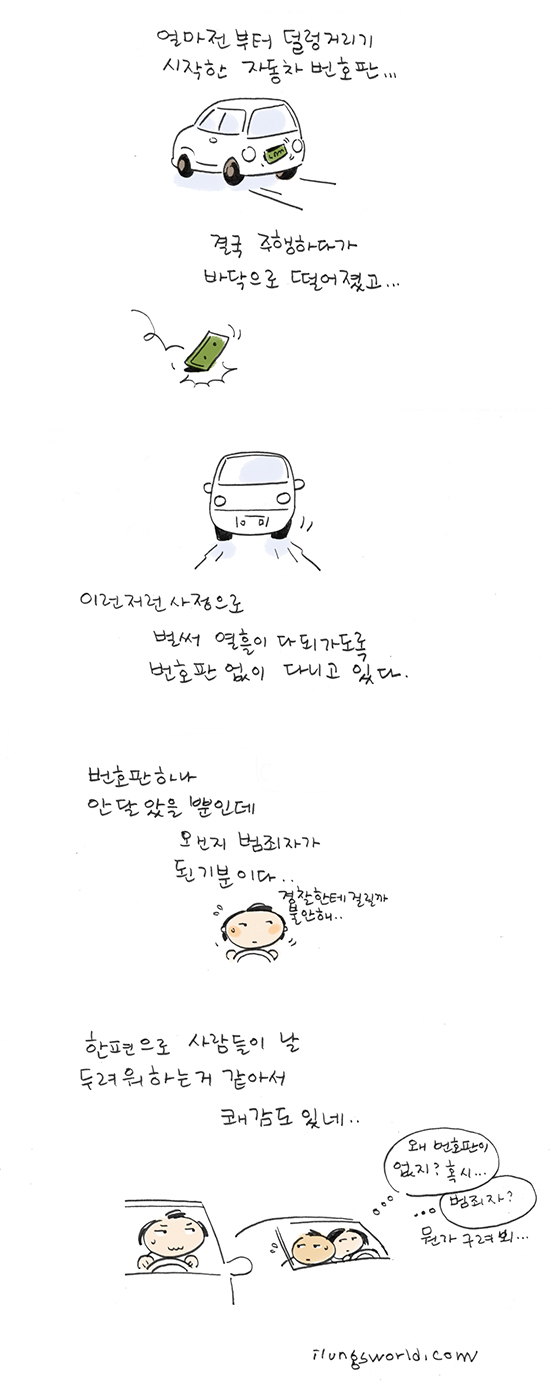 얼마전부터 덜렁거리기
시작한 자동차 번호판...
결국 주행하다가
바닥으로 떨어졌고...
이런저런 사정으로
벌써 열흘이 다 되가도록
번호판 없이 다니고 있다.
번호판하나
안 달 았을 뿐인데
왠지 범죄자가
된 기분이다..
경찰한테 걸릴까
불안해..
한편으로 사람들이 날
두려워하는거 같아서
쾌감도 있네..
왜 번호판이
없지? 혹시...
범죄자?
뭔가 구려 뵈...
ilungsworld.com